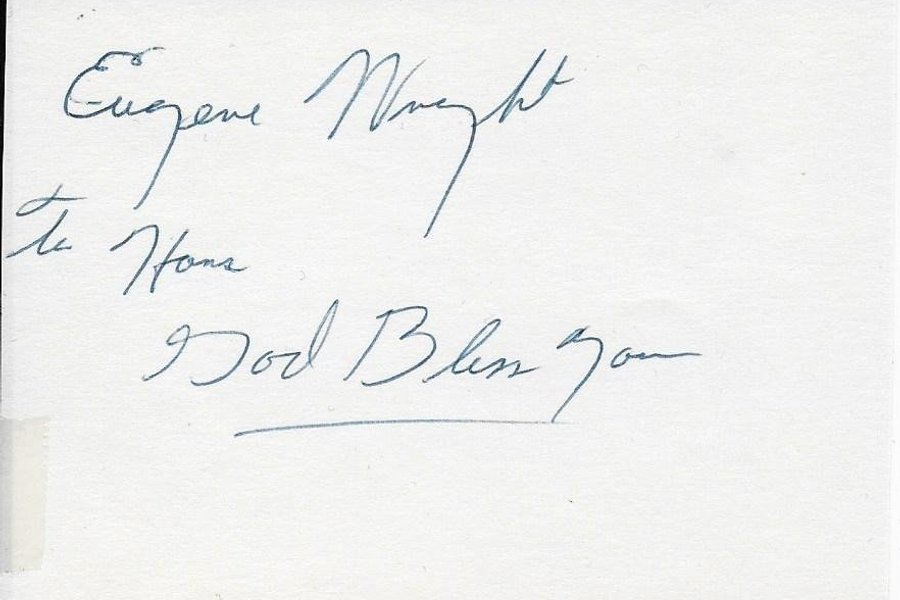 Eugene Wright
to Hans
God Bless You